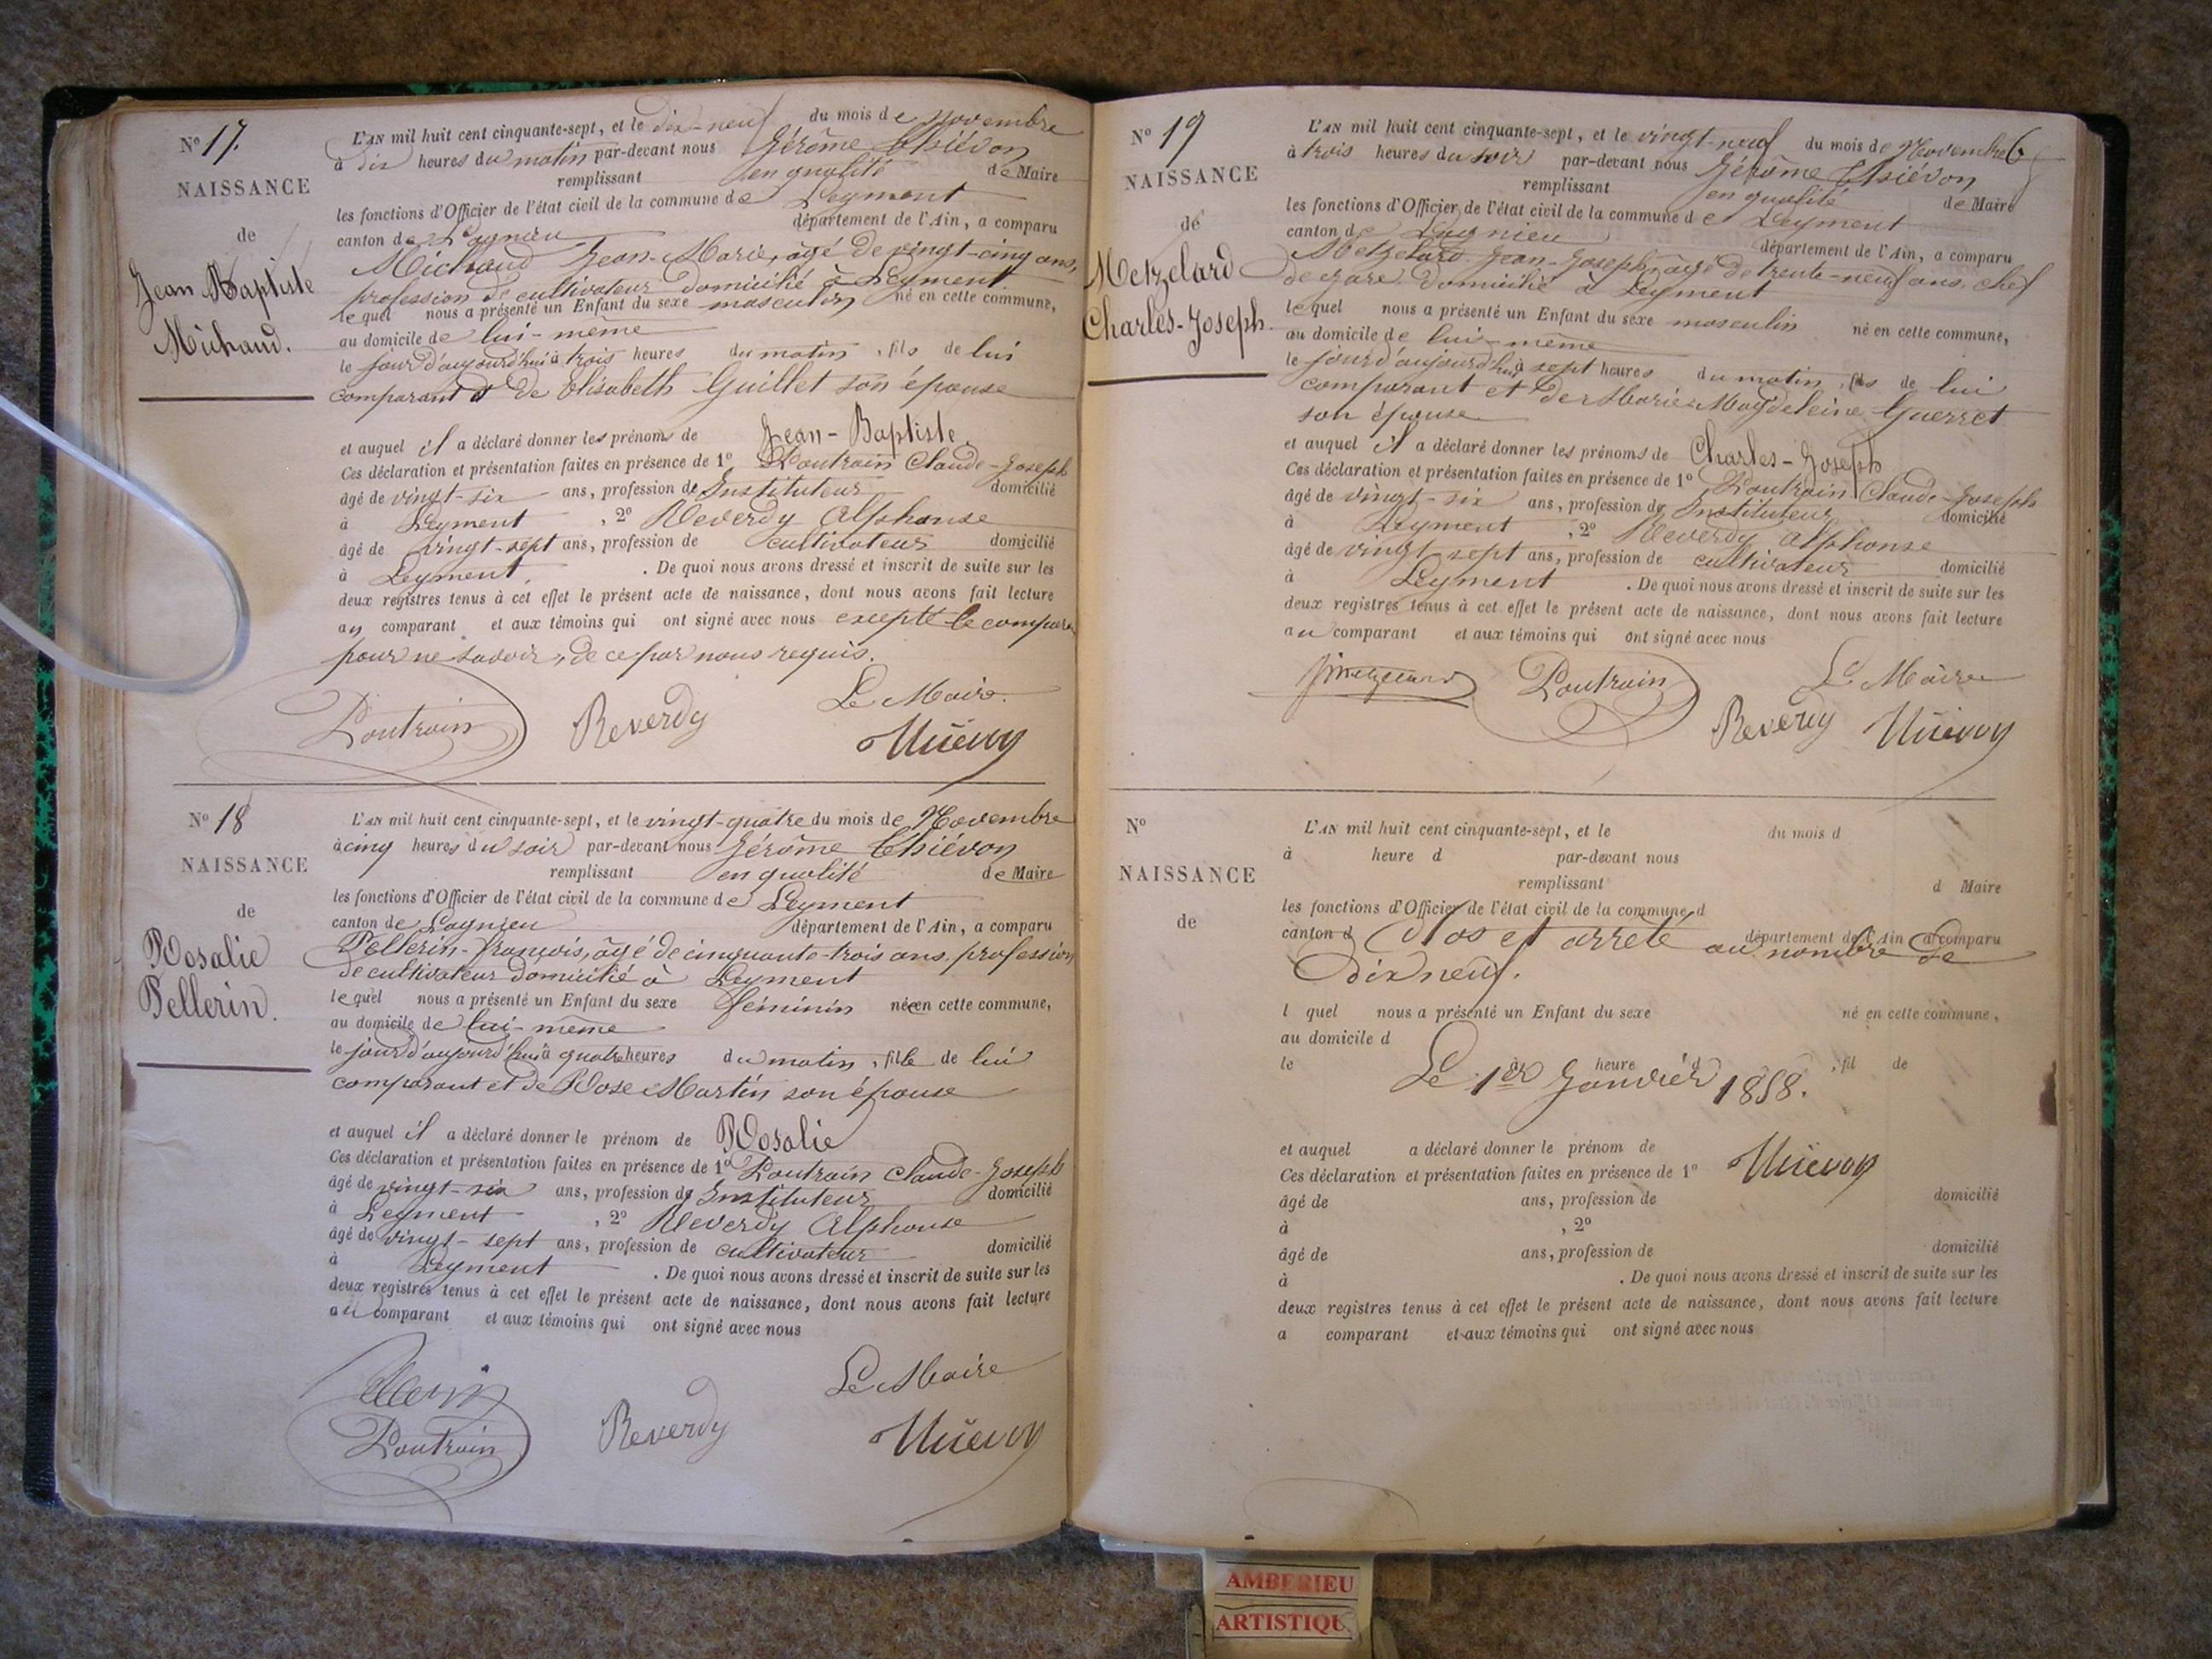 N° 17.
NAISSANCE
de
Jean Baptiste
Michaud.
L'AN mil huit cent cinquante-sept, et le dix-neuf du mois de Novembre
à dix heures du matin par-devant nous Jérôme Thiévon
remplissant en qualité de Maire
les fonctions d'Officier de l'état civil de la commune de Leyment
canton de Lagnieu département de l'Ain, a comparu
Michaud Jean-Marie, âgé de vingt-cinq ans,
profession de cultivateur domicilié à Leyment.
lequel nous a présenté un Enfant du sexe masculin né en cette commune,
au domicile de lui-même
le jour d'aujourd'hui à trois heures du matin, fils de lui
comparant et de Elisabeth Guillet son épouse
et auquel il a déclaré donner les prénoms de Jean-Baptiste.
Ces déclaration et présentation faites en présence de 1° Poutrain Claude-Joseph
âgé de vingt-six ans, profession de Instituteur domicilié
à Leyment, 2° Reverdy Alphonse
âgé de vingt-sept ans, profession de cultivateur domicilié
à Leyment. De quoi nous avons dressé et inscrit de suite sur les
deux registres tenus à cet effet le présent acte de naissance, dont nous avons fait lecture
au comparant et aux témoins qui ont signé avec nous excepté le compara
pour ne savoir, de ce par nous requis.
Le Maire.
Poutrain Reverdy Thiévon
N° 18
NAISSANCE
de
Rosalie
Pellerin.
L'AN mil huit cent cinquante-sept, et le vingt-quatre du mois de Novembre
à cinq heures du soir par-devant nous Jérôme Thiévon
remplissant en qualité de Maire
les fonctions d'Officier de l'état civil de la commune de Leyment
canton de Lagnieu département de l'Ain, a comparu
Pellerin-François, âgé de cinquante-trois ans, profession
de cultivateur domicilié à Leyment
lequel nous a présenté un Enfant du sexe féminin née en cette commune,
au domicile de lui-même
le jour d'aujourd'hui à quatre heures du matin, fille de lui
comparant et de Rose Martin son épouse
et auquel il a déclaré donner le prénom de Rosalie
Ces déclaration et présentation faites en présence de 1° Poutrain Claude-Joseph
âgé de vingt-six ans, profession de Instituteur domicilié
à Leyment, 2° Reverdy Alphonse
âgé de vingt-sept ans, profession de cultivateur domicilié
à Leyment. De quoi nous avons dressé et inscrit de suite sur les
deux registres tenus à cet effet le présent acte de naissance, dont nous avons fait lecture
au comparant et aux témoins qui ont signé avec nous
Le Maire
Pellerin
Poutrain Reverdy Thiévon
N° 19
NAISSANCE
de
Metzelard
Charles-Joseph.
L'AN mil huit cent cinquante-sept, et le vingt-neuf du mois de Novembre
à trois heures du soir par-devant nous Jérôme Thiévon
remplissant en qualité de Maire
les fonctions d'Officier de l'état civil de la commune de Leyment
canton de Lagnieu département de l'Ain, a comparu
Metzelard Jean-Joseph, âgé de trente-neuf ans, chef
de gare domicilié à Leyment
lequel nous a présenté un Enfant du sexe masculin né en cette commune,
au domicile de lui-même
le jour d'aujourd'hui à sept heures du matin, fils de lui
comparant et de Marie-Magdeleine Guerret
son épouse
et auquel il a déclaré donner les prénoms de Charles-Joseph
Ces déclaration et présentation faites en présence de 1° Poutrain Claude-Joseph
âgé de vingt-six ans, profession de Instituteur domicilié
à Leyment, 2° Reverdy Alphonse
âgé de vingt-sept ans, profession de cultivateur domicilié
à Leyment. De quoi nous avons dressé et inscrit de suite sur les
deux registres tenus à cet effet le présent acte de naissance, dont nous avons fait lecture
au comparant et aux témoins qui ont signé avec nous
Poutrain Le Maire
Reverdy Thiévon
N°
NAISSANCE
de
L'AN mil huit cent cinquante-sept, et le du mois d
à heure d par-devant nous
remplissant d Maire
les fonctions d'Officier de l'état civil de la commune d
canton d département de l'Ain, a comparu
Clos et arreté au nombre de
dix neuf.
l quel nous a présenté un Enfant du sexe né en cette commune,
au domicile d
le à heure d , fil de
Le 1er Janvier 1858.
et auquel a déclaré donner le prénom de
Thiévon
Ces déclaration et présentation faites en présence de 1°
âgé de ans, profession de domicilié
à , 2°
âgé de ans, profession de domicilié
à . De quoi nous avons dressé et inscrit de suite sur les
deux registres tenus à cet effet le présent acte de naissance, dont nous avons fait lecture
a comparant et aux témoins qui ont signé avec nous
AMBERIEU
ARTISTIQU